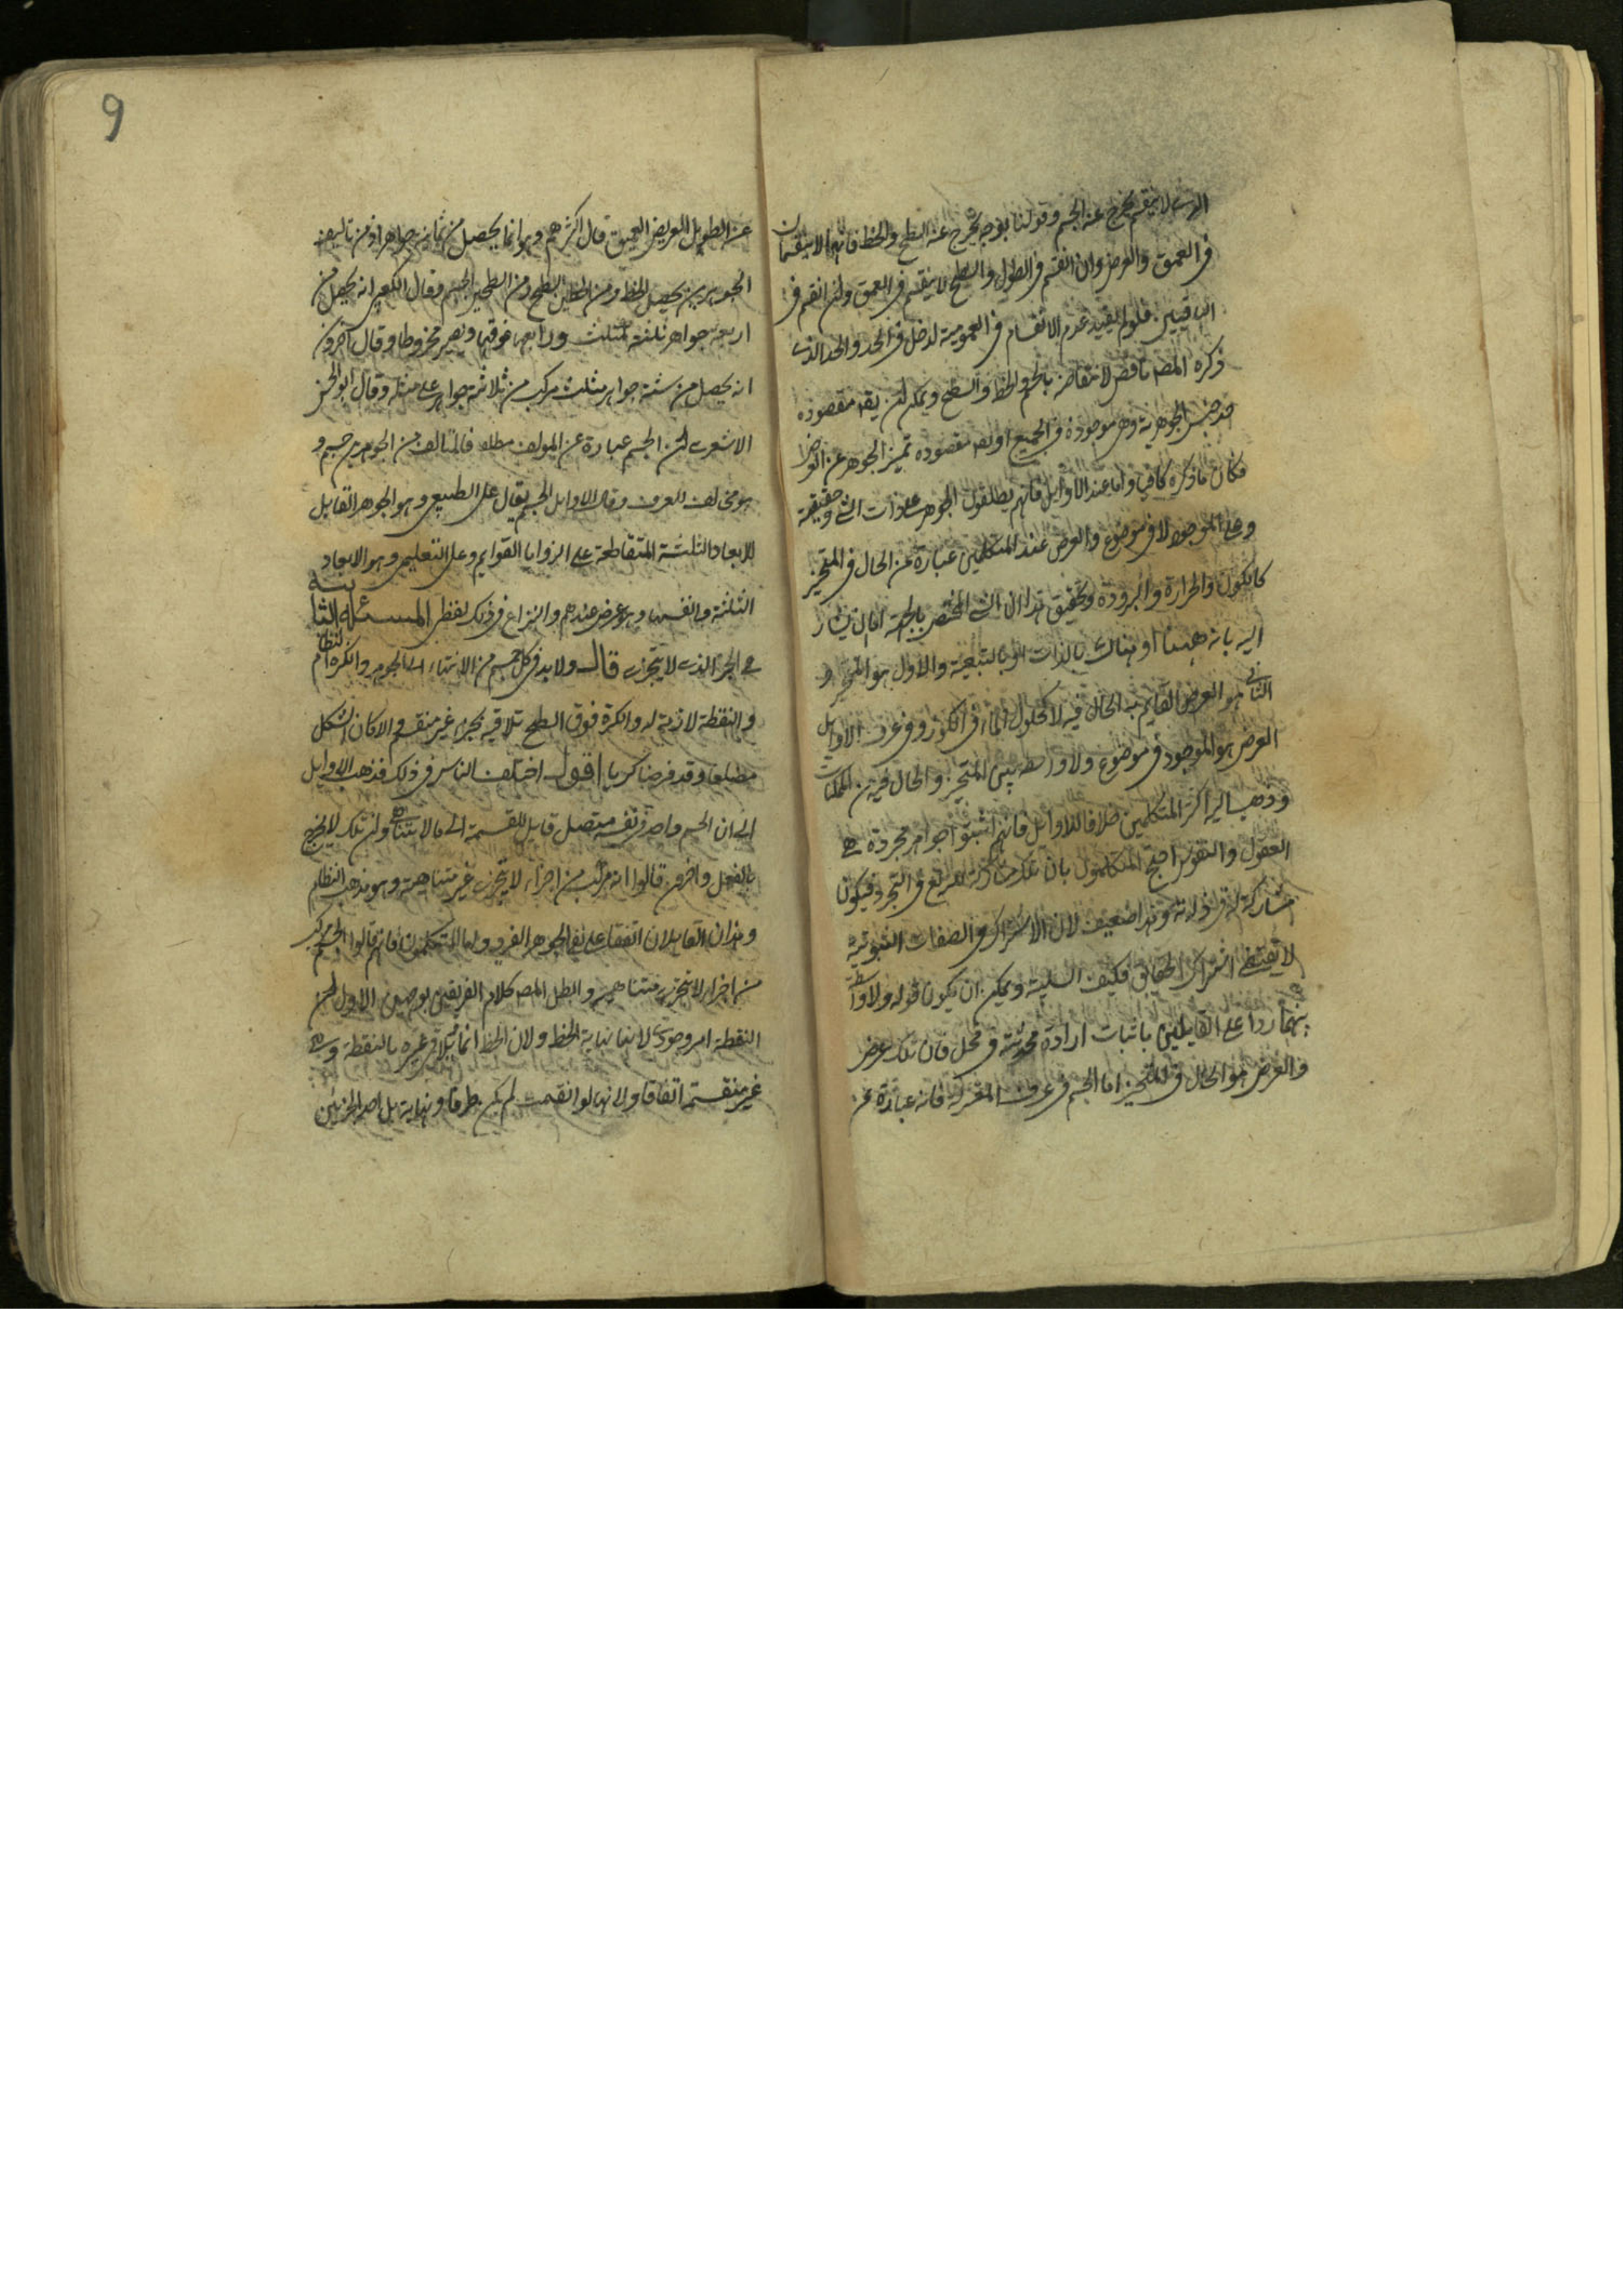 الذى لا ينقسم يخرج عنه الجسم وقولنا بوجه يخرج عنه السطح والخط فانهما لا ينقسمان
فى العمق والعرض وان انقسم فى الطول والسطح لا ينقسم فى العمق وان انقسم فى
الباقيين فلو لم يقيد عدم الانقسام فى العمومية لدخل فى الحد والحد الذى
ذكره المصر ناقص لانتقاضه بالجسم والخط والسطح ويمكن ان يقه مقصوده
جنس الجوهرية وهى موجودة فى الجميع اويقه مقصوده تميز الجوهر عن العرض
فكان ما ذكره كافيا واما عند الاوايل فانهم يطلقون الجوهر على ذات الشى وحقيقته
وعلى الموجود لا فى موضوع والعرض عند المتكلمين عبارة عن الحال فى المتحيز
كالكون والحرارة والبرودة وتحقيق هذا ان الشى المختص بالجهة اما ان يشار
اليه بانه ههنا او هناك بالذات او بالتبعية والاول هو المتحيز و
الثانى هو العرض القايم به الحال فيه لا كحلول الماء فى الكوز وفى عرف الاوايل
العرض هو الموجود فى موضوع ولا واسطه بين المتحيز والحال فيه من الممكنات
وذهب اليه اكثر المتكلمين خلافا للاوايل فانهم اثبتوا جواهر مجردة هى
العقول والنفوس احتج المتكلمون بان تلك مشاركة له تع فى التجرد فيكون
مشاركة له فى ذاته وهذا ضعيف لان الاشتراك فى الصفات الثبوتية
لا يقتضى اشتراك الحقايق فكيف السلبية ويمكن ان يكون قوله ولا واسطة
بينهما ردا على القايلين باثبات ارادة محدثة لا فى محل فان تلك عرض
والعرض هو الحال فى المتحيز اما الجسم فى عرف المعتزلة فانه عبارة عن
عن الطويل العريض العميق قال اكثرهم وهو انما يحصل من ثمانيه جواهر اذ من تاليف
الجوهرين يحصل الخط ومن الخطين السطح ومن السطحين الجسم وقال الكعبى انه يحصل من
اربعة جواهر ثلثة كمثلث ورابعها فوقها ويصير مخروطا وقال آخرون
انه يحصل من ستة جواهر مثلث مركب من ثلاثة جواهر على مثله وقال ابو الحسن
الاشعرى ان الجسم عبارة عن المولف مطلقا فالمتالف من الجوهرين جسم و
هو مخالف للعرف وقال الاوايل الجسم يقال على الطبيعى وهو الجوهر القابل
للابعاد الثلثة المتقاطعة على الزوايا القوايم وعلى التعليمى وهو الابعاد
الثلثة نفسها وهو عرض عندهم والنزاع فى ذلك لفظى المسئلة الثانية
فى الجزء الذى لا يتجزى قال ولا بد فى كل جسم من الانتهاء الى الجوهر وانكره النظام
والنقطة لازمة له والكرة فوق السطح تلاقيه بجزء غير منقسم والا كان الشكل
مضلعا وقد فرضنا كريا اقول اختلف الناس فى ذلك فذهب الاوايل
الى ان الجسم واحد فى نفسه متصل قابل للقسمة الى ما لا يتناهى وان تلك لا يخرج
بالفعل وآخرون قالوا انه مركب من اجزاء لا يتجزى غير متناهية وهو مذهب النظام
وهذان القايلان اتفقا على نفى الجوهر الفرد واما المتكلمون فانهم قالوا الجسم مركب
من اجزاء لا يتجزى متناهية وابطل المصر كلام الفريقين بوجهين الاول ان
النقطة امر وجودى لانها نهاية الخط ولان الخط انما يلاقى غيره بالنقطة وهى
غير منقسمة اتفاقا ولانها لو انقسمت لم يكن طرفا ونهاية بل احد الجزئين